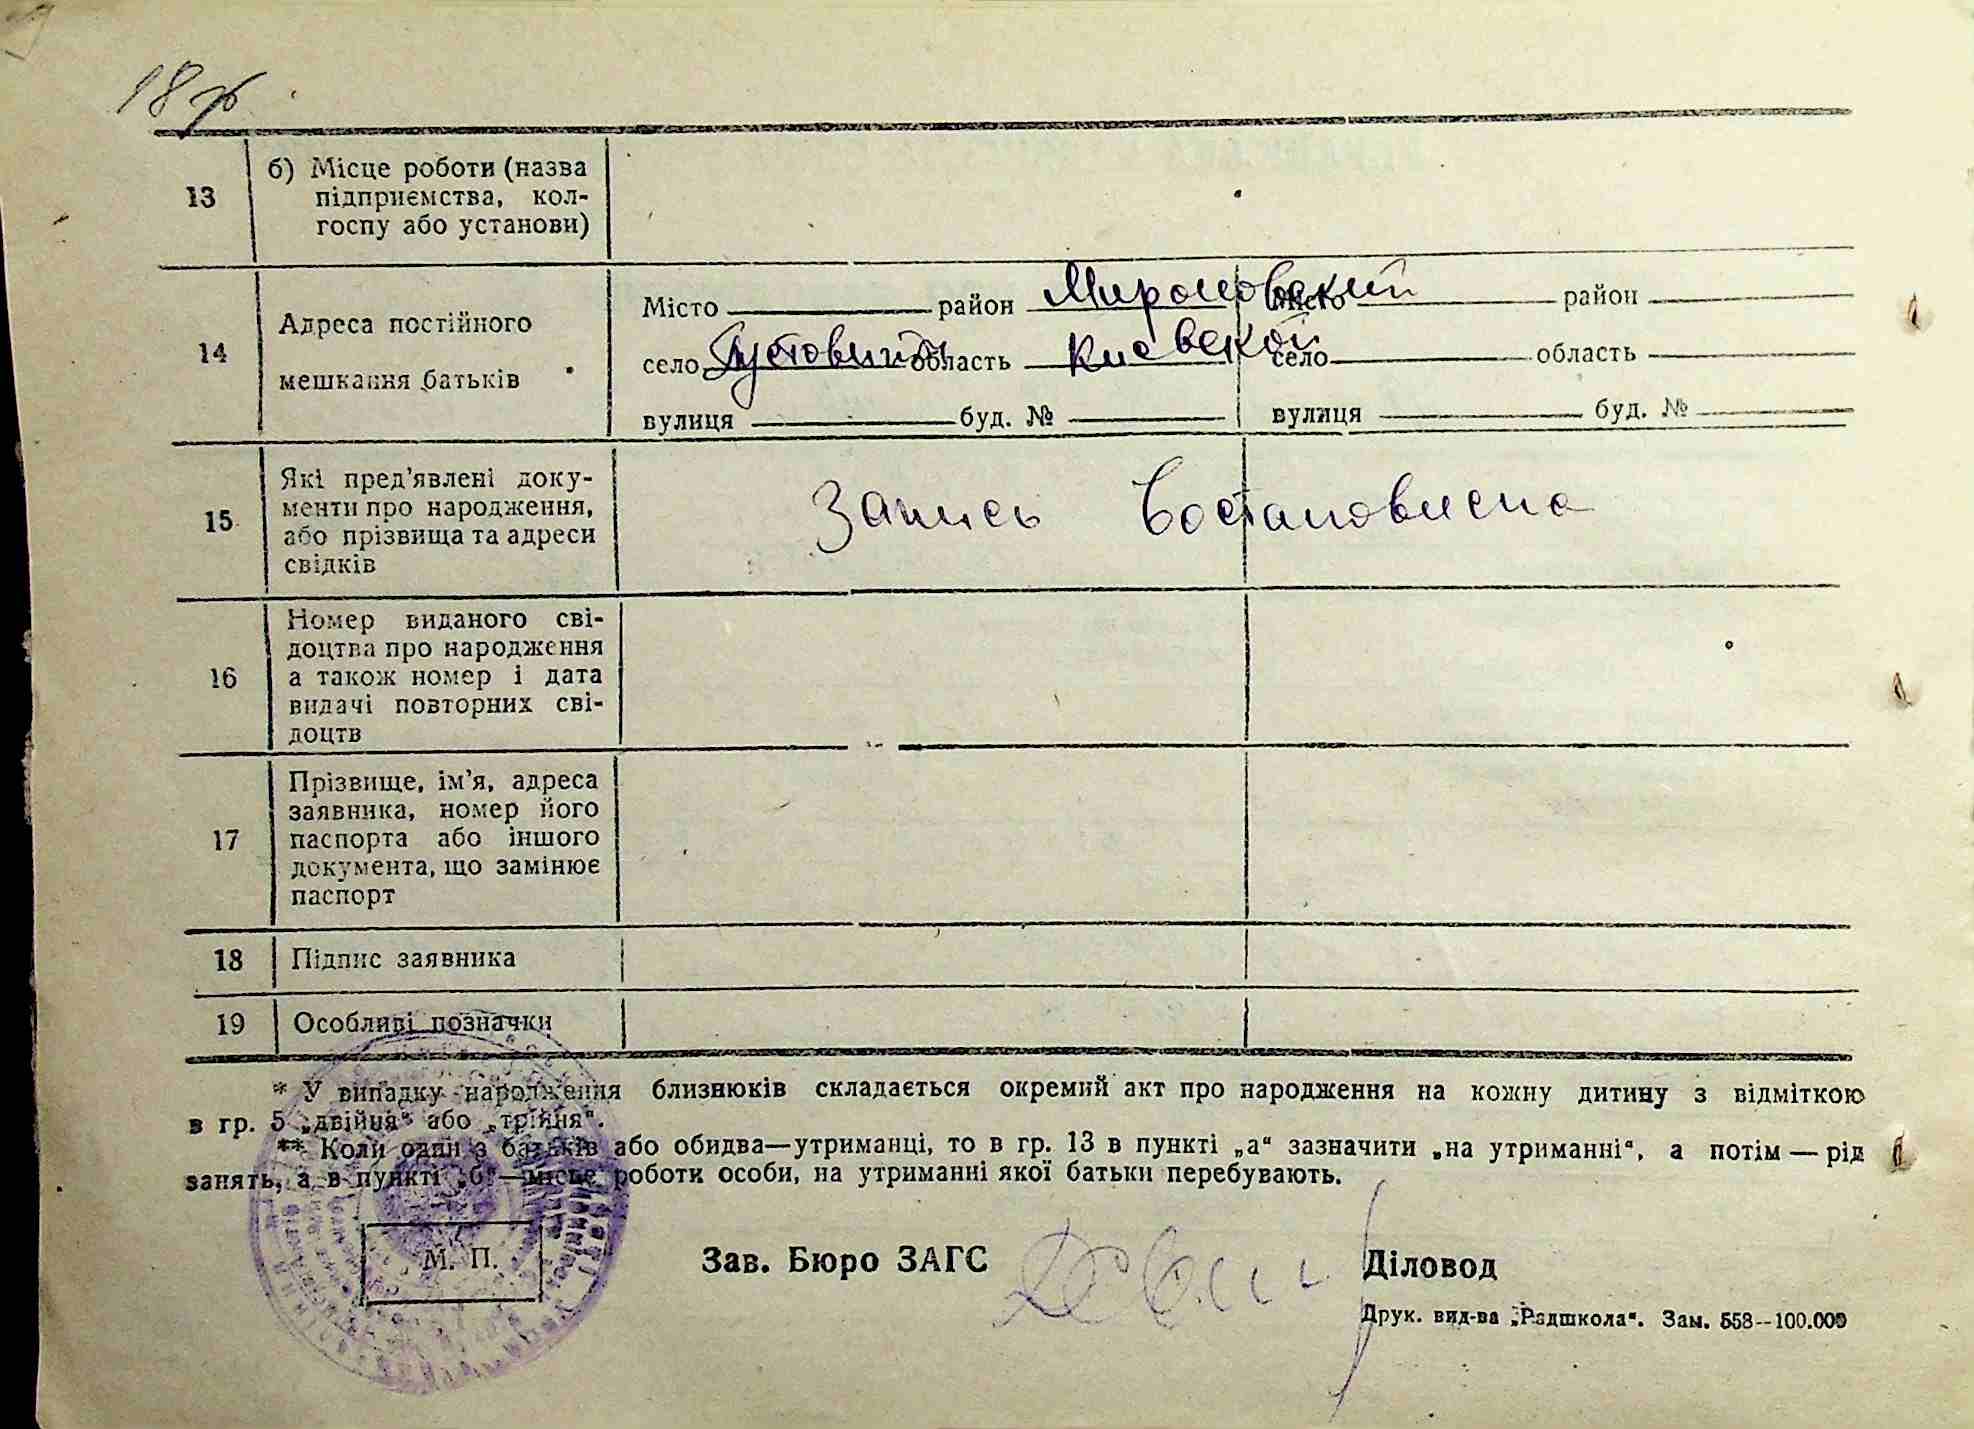 18
13
б) Місце роботи (назва
підприємства, кол-
госпу або установи)
14
Адреса постійного
мешкання батьків
Місто район Мироновский Місто район
село Пустовиты область Киевской село область
вулиця буд. № вулиця буд. №
15
Які пред’явлені доку-
менти про народження,
або прізвища та адреси
свідків
Запись востановлена
16
Номер виданого сві-
доцтва про народження
а також номер і дата
видачі повторних сві-
доцтв
17
Прізвище, ім’я, адреса
заявника, номер його
паспорта або іншого
документа, що замінює
паспорт
18 Підпис заявника
19 Особливі позначки
* У випадку народження близнюків складається окремий акт про народження на кожну дитину з відміткою
в гр. 5 „двійня“ або „трійня“.
** Коли один з батьків або обидва—утриманці, то в гр. 13 в пункті „а“ зазначити „на утриманні“, а потім — рід
занять, а в пункті „б“—місце роботи особи, на утриманні якої батьки перебувають.
М. П.
Зав. Бюро ЗАГС
Діловод
Друк. вид-ва „Радшкола“. Зам. 558--100.000